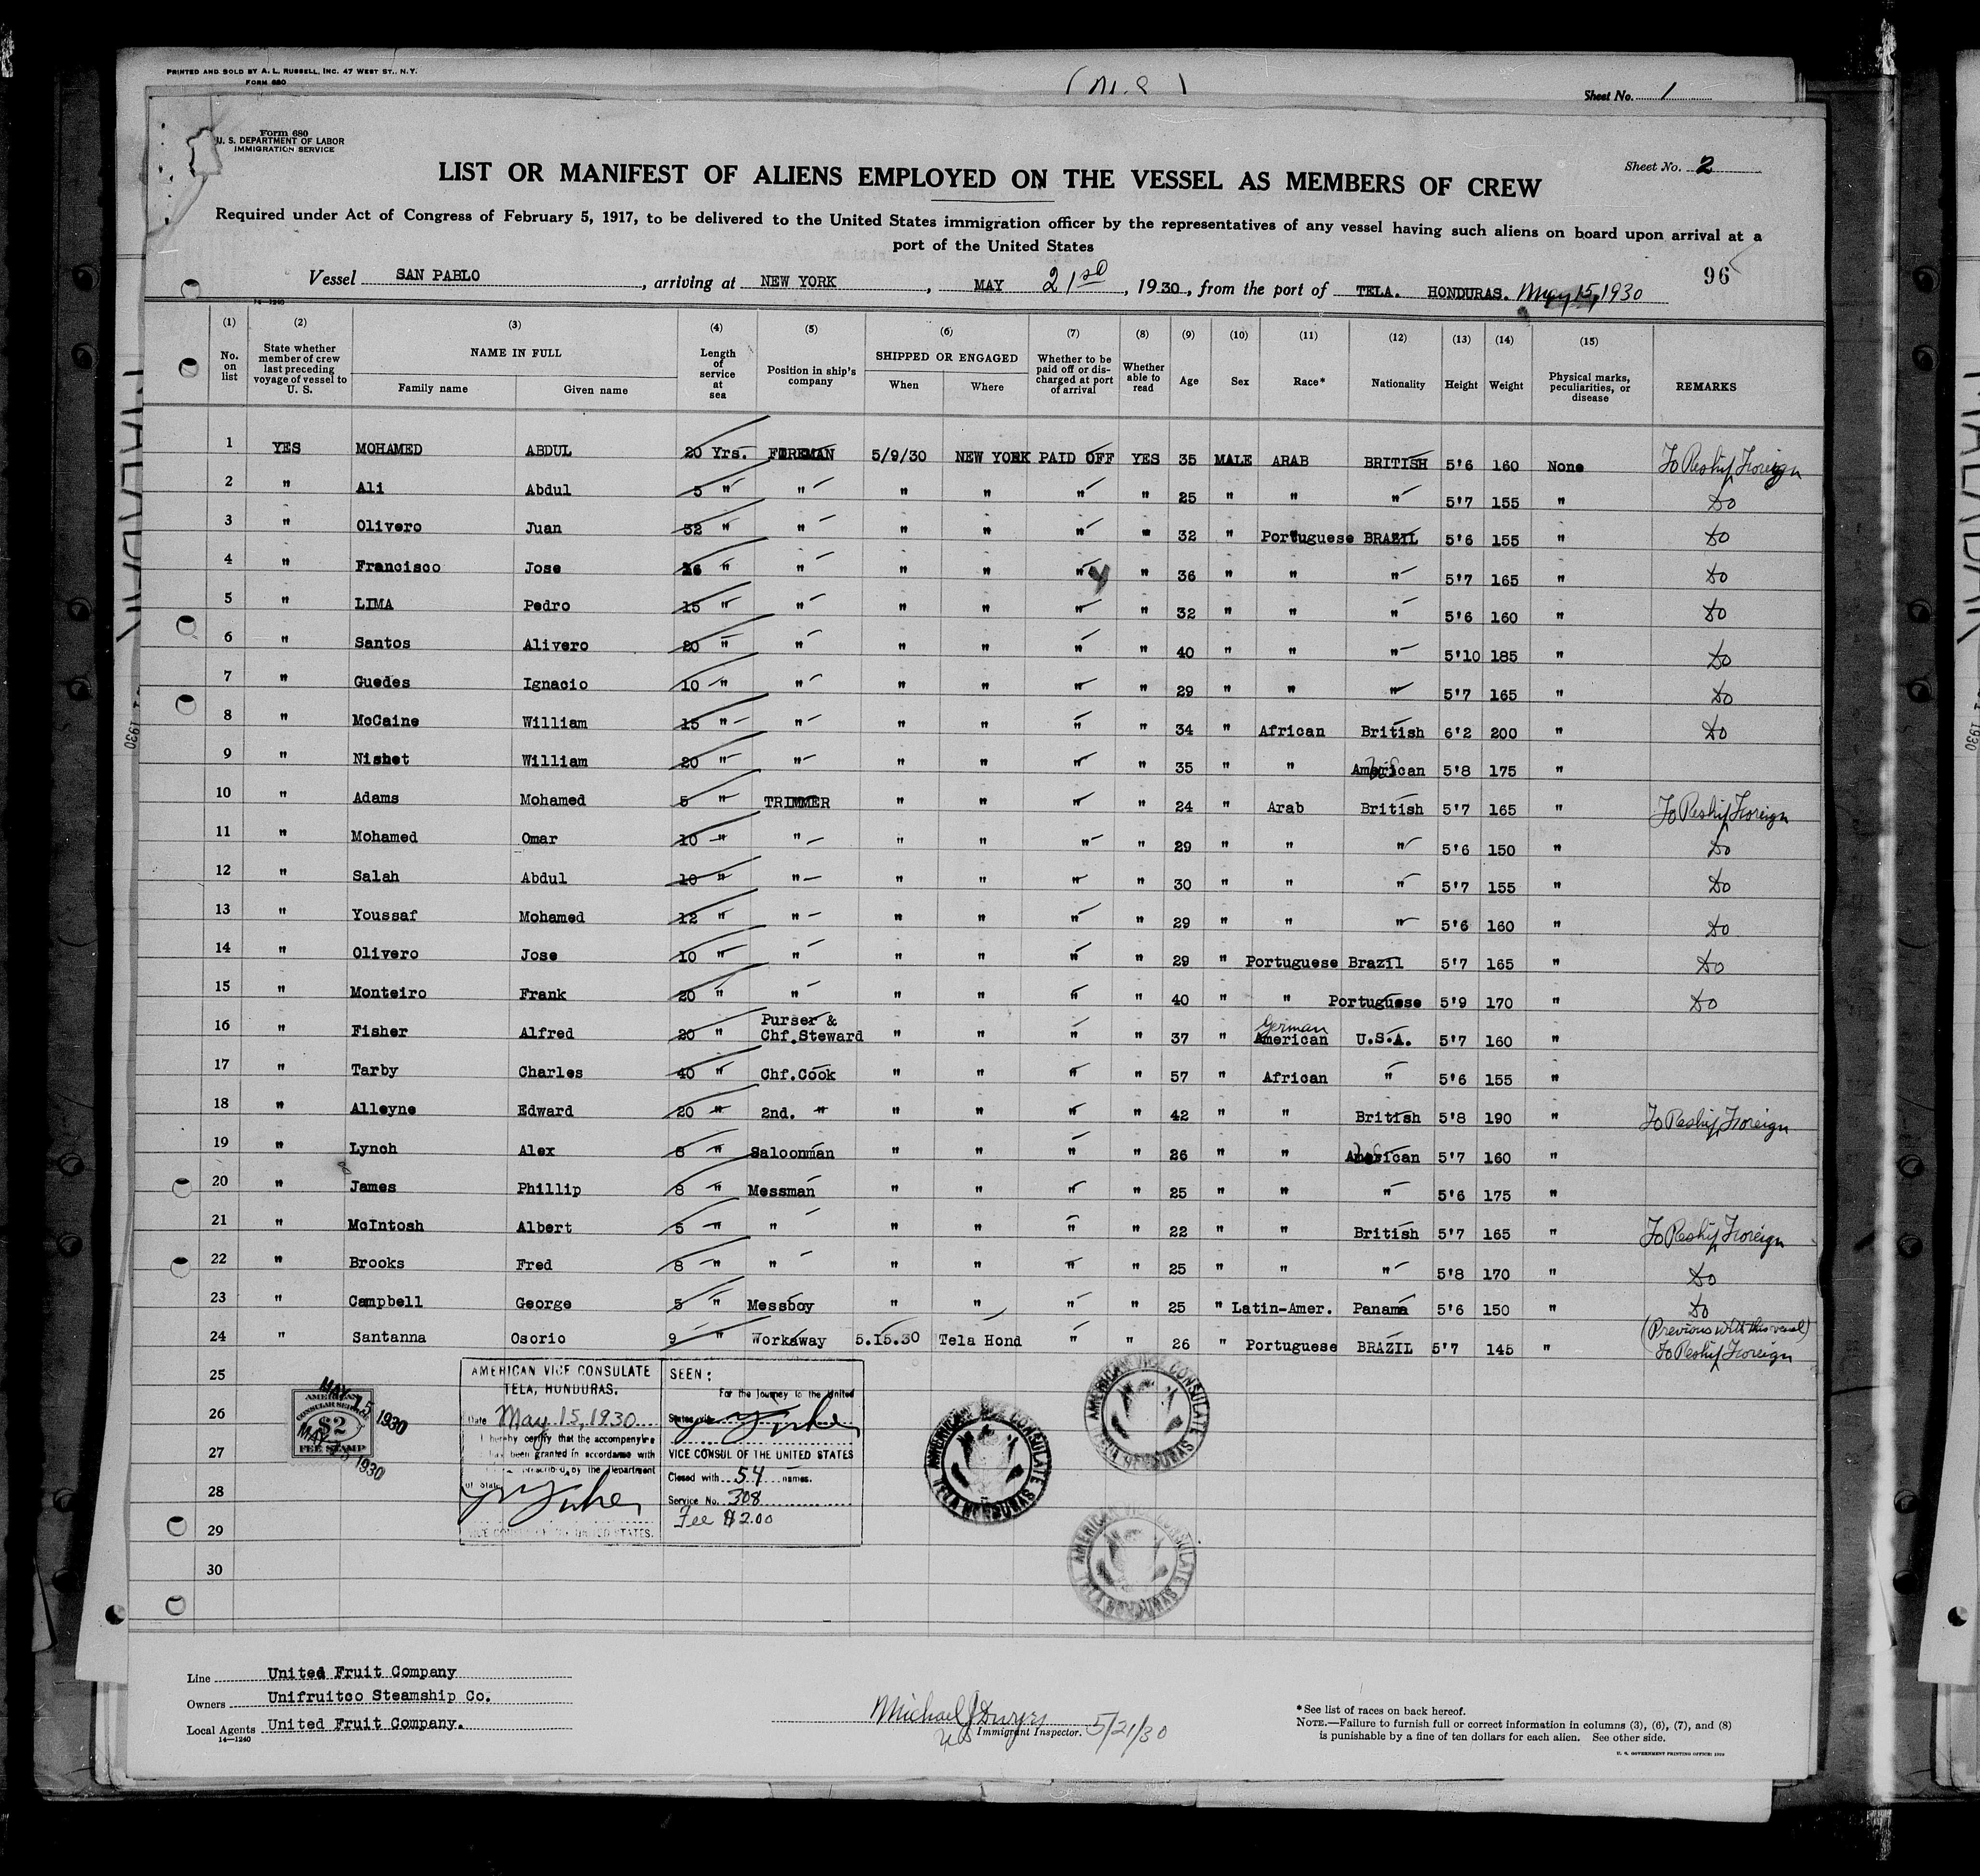 PRINTED AND SOLD BY A. L. RUSSELL, INC. 47 WEST ST., N.Y.
FORM 680
Sheet No. 1
Form 680
U. S. DEPARTMENT OF LABOR
IMMIGRATION SERVICE
Sheet No. 2
LIST OR MANIFEST OF ALIENS EMPLOYED ON THE VESSEL AS MEMBERS OF CREW
Required under Act of Congress of February 5, 1917, to be delivered to the United States immigration officer by the representatives of any vessel having such aliens on board upon arrival at a
port of the United States
96
Vessel SAN PABLO, arriving at NEW YORK, MAY 21st, 1930, from the port of TELA. HONDURAS. May 15, 1930
14—1240
(1) No. on list (2) State whether member of crew last preceding voyage of vessel to U. S. (3) NAME IN FULL Family name Given name (4) Length of service at sea (5) Position in ship's company (6) SHIPPED OR ENGAGED When Where (7) Whether to be paid off or discharged at port of arrival (8) Whether able to read (9) Age (10) Sex (11) Race* (12) Nationality (13) Height (14) Weight (15) Physical marks, peculiarities, or disease REMARKS
1 YES MOHAMED ABDUL 20 Yrs. FIREMAN 5/9/30 NEW YORK PAID OFF YES 35 MALE ARAB BRITISH 5'6 160 None To Reship Foreign
2 " Ali Abdul 5 " " " " " " 25 " " " 5'7 155 " Do
3 " Olivero Juan 32 " " " " " " 32 " Portuguese BRAZIL 5'6 155 " Do
4 " Francisco Jose 16 " " " " " " 36 " " " 5'7 165 " Do
5 " LIMA Pedro 15 " " " " " " 32 " " " 5'6 160 " Do
6 " Santos Alivero 20 " " " " " " 40 " " " 5'10 185 " Do
7 " Guedes Ignacio 10 " " " " " " 29 " " " 5'7 165 " Do
8 " McCaine William 15 " " " " " " 34 " African British 6'2 200 " Do
9 " Nisbet William 20 " " " " " " 35 " " American 5'8 175 "
10 " Adams Mohamed 5 " TRIMMER " " " " 24 " Arab British 5'7 165 " To Reship Foreign
11 " Mohamed Omar 10 " " " " " " 29 " " " 5'6 150 " Do
12 " Salah Abdul 10 " " " " " " 30 " " " 5'7 155 " Do
13 " Youssaf Mohamed 12 " " " " " " 29 " " " 5'6 160 " Do
14 " Olivero Jose 10 " " " " " " 29 " Portuguese Brazil 5'7 165 " Do
15 " Monteiro Frank 20 " " " " " " 40 " " Portuguese 5'9 170 " Do
16 " Fisher Alfred 20 " Purser & Chf.Steward " " " " 37 " German American U.S.A. 5'7 160 "
17 " Tarby Charles 40 " Chf.Cook " " " " 57 " African " 5'6 155 "
18 " Alleyne Edward 20 " 2nd. " " " " " 42 " " British 5'8 190 " To Reship Foreign
19 " Lynch Alex 8 " Saloonman " " " " 26 " " American 5'7 160 "
20 " James Phillip 8 " Messman " " " " 25 " " " 5'6 175 "
21 " McIntosh Albert 5 " " " " " " 22 " " British 5'7 165 " To Reship Foreign
22 " Brooks Fred 8 " " " " " " 25 " " " 5'8 170 " Do
23 " Campbell George 5 " Messboy " " " " 25 " Latin-Amer. Panama 5'6 150 " Do
24 " Santanna Osorio 9 " Workaway 5.15.30 Tela Hond " " 26 " Portuguese BRAZIL 5'7 145 " (Previous with this vessel) To Reship Foreign
25
26
27
28
29
30
AMERICAN CONSULAR SERVICE
$2
FEE STAMP
MAY 15 1930
MAY 15 1930
AMERICAN VICE CONSULATE
TELA, HONDURAS.
Date May 15, 1930
I hereby certify that the accompanying
has been granted in accordance with
prescribed by the Department
of State
VICE CONSUL OF THE UNITED STATES.
SEEN:
For the journey to the United
States via
VICE CONSUL OF THE UNITED STATES
Closed with 54 names.
Service No. 308
Fee $2.00
AMERICAN VICE CONSULATE TELA HONDURAS
AMERICAN VICE CONSULATE TELA HONDURAS
AMERICAN VICE CONSULATE TELA HONDURAS
Line United Fruit Company
Owners Unifruitco Steamship Co.
Local Agents United Fruit Company.
14—1240
Michael J Dwyer
US Immigrant Inspector. 5/21/30
*See list of races on back hereof.
NOTE.—Failure to furnish full or correct information in columns (3), (6), (7), and (8)
is punishable by a fine of ten dollars for each alien. See other side.
U. S. GOVERNMENT PRINTING OFFICE